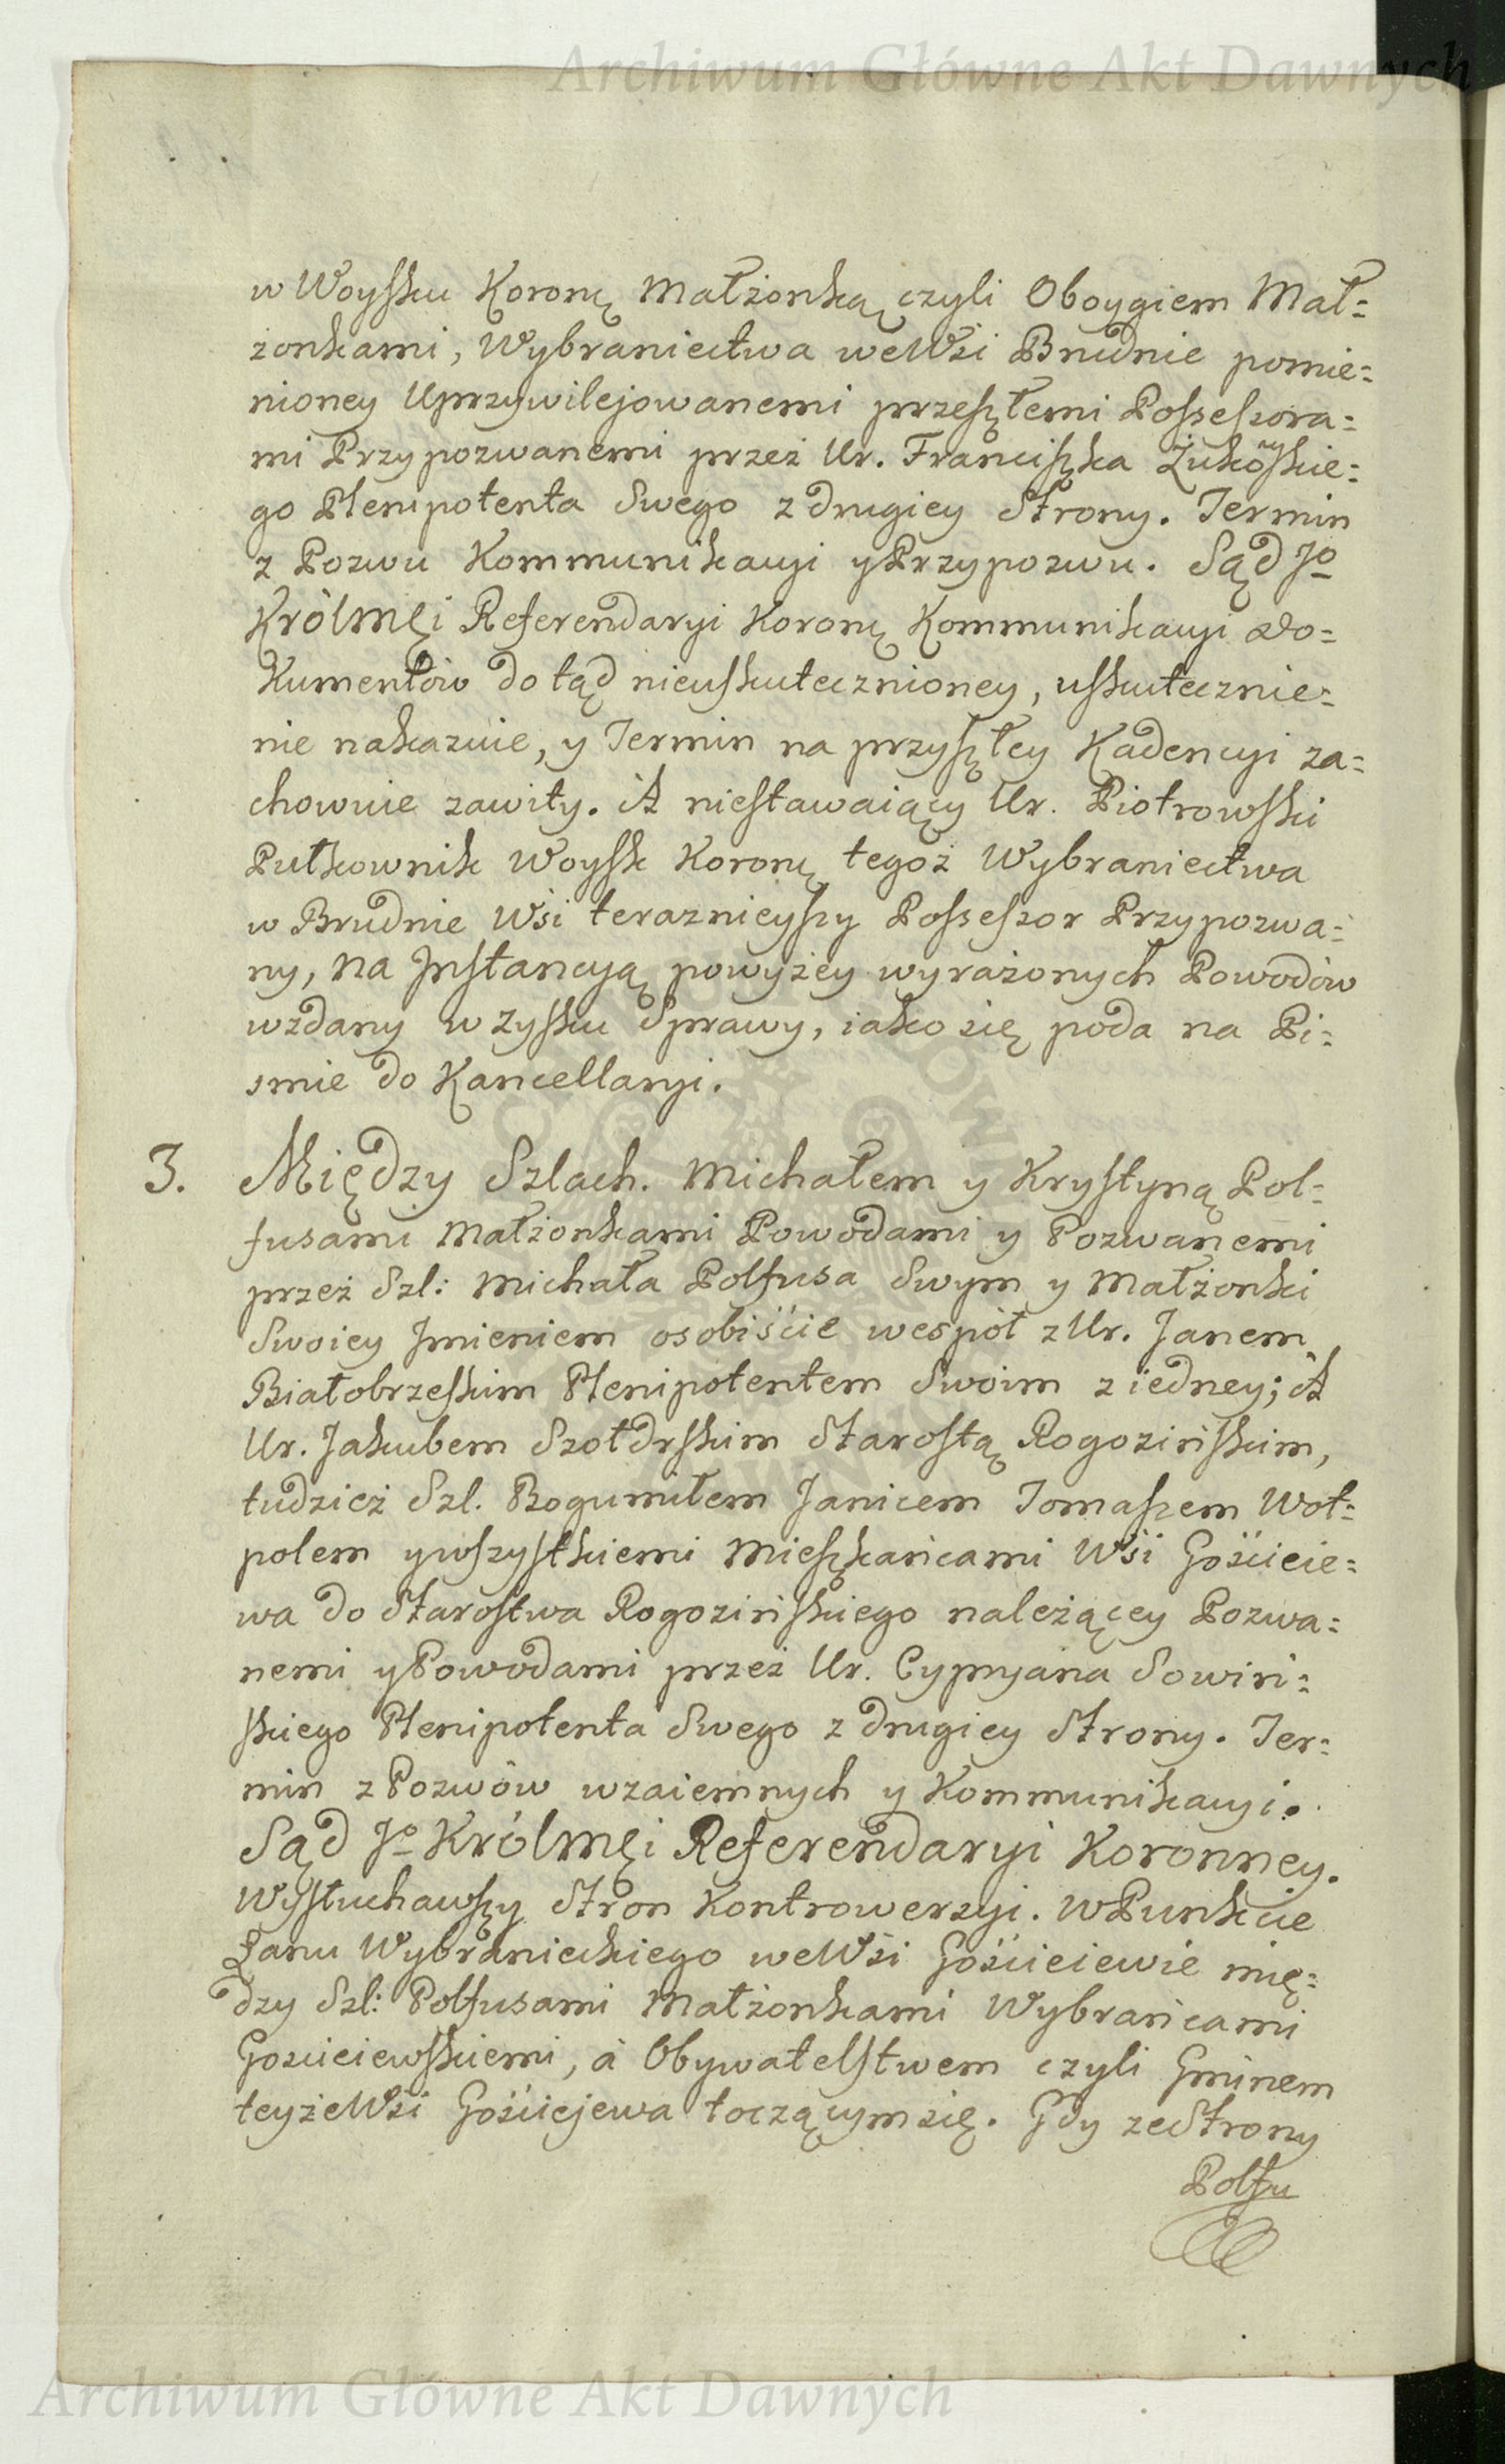 Archiwum Główne Akt Dawnych
w Woysku Koronę Małżonką czyli Oboygiem Mał=
żonkami, Wybraniectwa we Wsi Brudnie pomie=
nioney Uprzywilejowanemi przeszłemi Possessora=
mi Przypozwanemi przez Ur. Franciszka Żukowskie=
go Plenipotenta Swego z drugiey Strony. Termin
z Pozwu Kommunikacyi y Przypozwu. Sąd Jo
KrólMęi Referendaryi Koronę Kommunikacyi Do=
kumentów do tąd nieuskutecznioney, uskutecznie=
nie nakazuie, y Termin na przyszłey Kadencyi za=
chowuie zawity. A niestawaiący Ur. Piotrowski
Pułkownik Woysk Koronę tegoż Wybraniectwa
w Brudnie Wsi teraznieyszy Possessor Przypozwa=
ny, na Jnstancyą powyżey wyrażonych Powodów
wzdany w zysku Sprawy, iako się poda na Pi=
smie do Kancellaryi.
3. Między Szlach. Michałem y Krystyną Pol=
fusami Małżonkami Powodami y Pozwanemi
przez Szl: Michała Polfusa Swym y Małżonki
Swoiey Jmieniem osobiście wespół z Ur. Janem
Białobrzeskim Plenipotentem Swoim z iedney; A
Ur. Jakubem Szołdrskim Starostą Rogozińskim,
tudzież Szl. Bogumiłem Janicem Tomaszem Woł=
polem y wszystkiemi Mieszkańcami Wsi Gościeie=
wa do Starostwa Rogozińskiego należącey Pozwa=
nemi y Powodami przez Ur. Cypryana Sowiń=
skiego Plenipotenta Swego z drugiey Strony. Ter=
min z Pozwów wzaiemnych y Kommunikacyi.
Sąd Jo KrólMęi Referendaryi Koronney.
Wysłuchawszy Stron Kontrowersyi. W Punkcie
Łanu Wybranieckiego we Wsi Gościeiewie mię=
dzy Szl: Polfusami Małżonkami Wybrańcami
Gościeiewskiemi, à Obywatelstwem czyli Gminem
teyże Wsi Gościejewa toczącym się. Gdy ze Strony
Polfu
Archiwum Główne Akt Dawnych